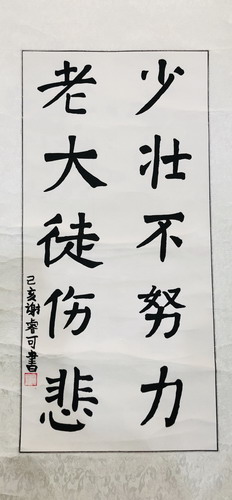 少壮不努力
老大徒伤悲
己亥谢睿可书